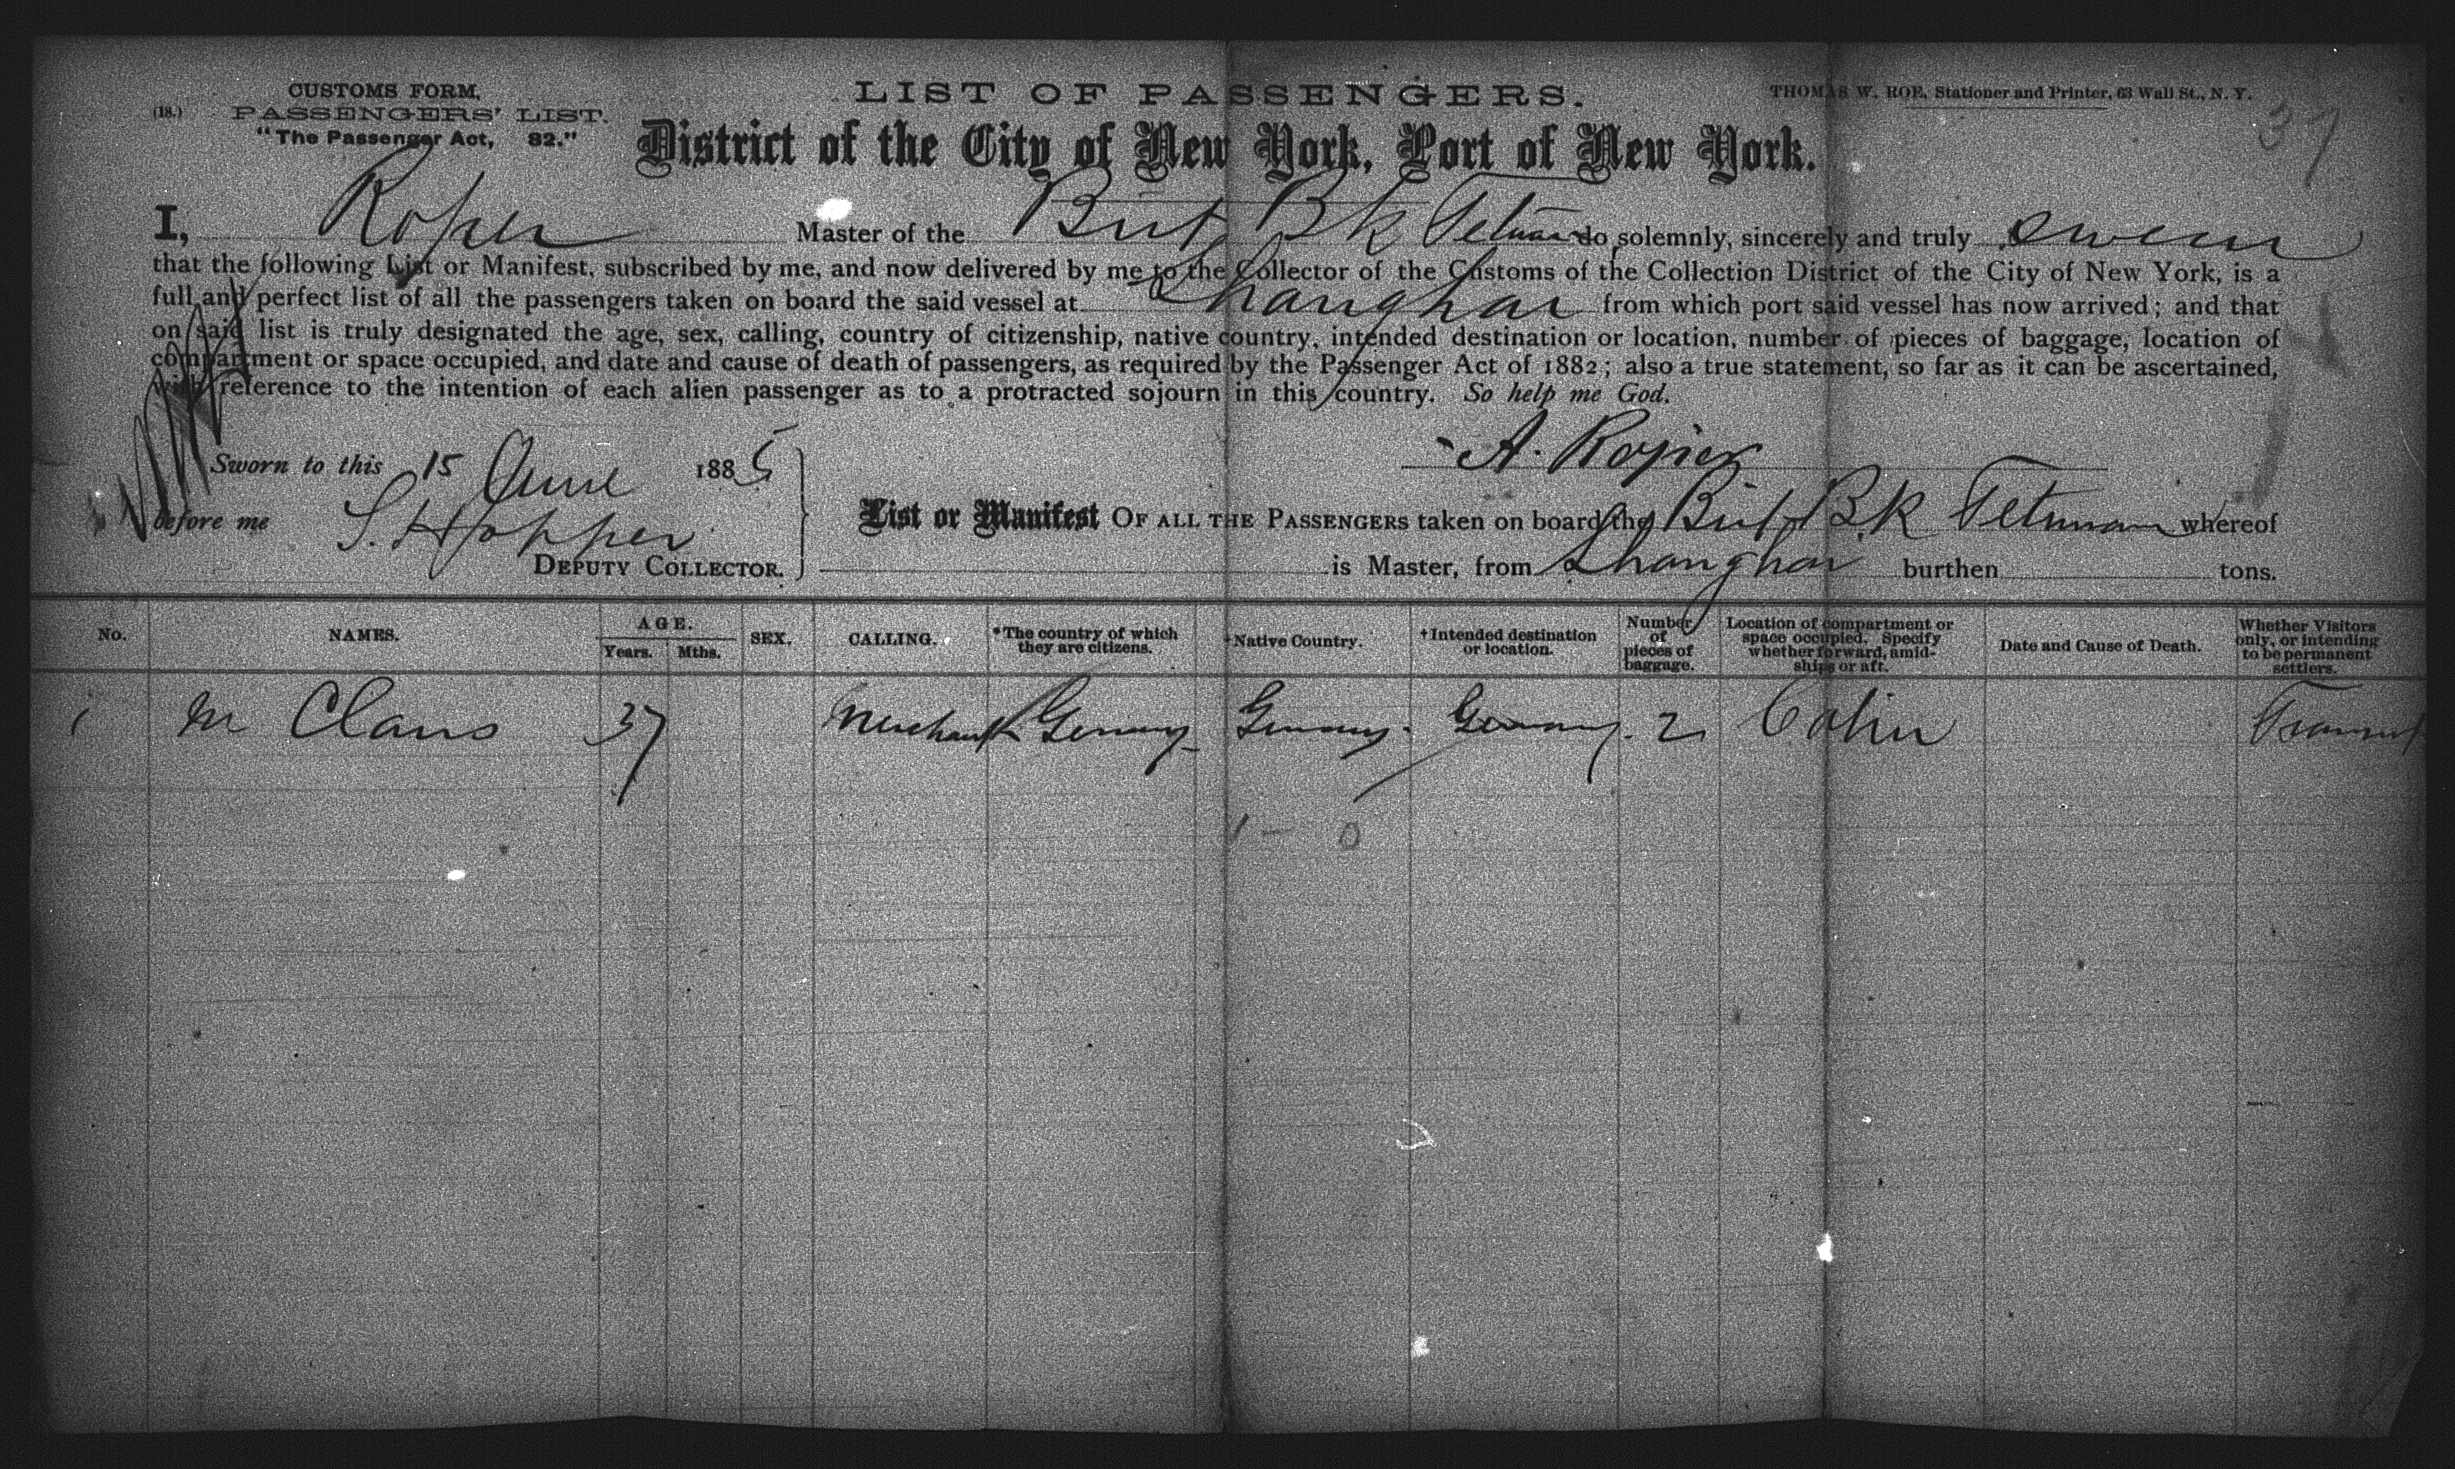 CUSTOMS FORM.
(18.) PASSENGERS' LIST.
"The Passenger Act, 82."
LIST OF PASSENGERS.
THOMAS W. ROE, Stationer and Printer, 63 Wall St., N. Y.
37
District of the City of New York, Port of New York.
I, Roper Master of the Brit Bk Tetuan do solemnly, sincerely and truly swear
that the following List or Manifest, subscribed by me, and now delivered by me to the Collector of the Customs of the Collection District of the City of New York, is a
full and perfect list of all the passengers taken on board the said vessel at Shanghai from which port said vessel has now arrived; and that
on said list is truly designated the age, sex, calling, country of citizenship, native country, intended destination or location, number of pieces of baggage, location of
compartment or space occupied, and date and cause of death of passengers, as required by the Passenger Act of 1882; also a true statement, so far as it can be ascertained,
with reference to the intention of each alien passenger as to a protracted sojourn in this country. So help me God.
A. Roper
Sworn to this 15 June 1885
before me S. Hopper
DEPUTY COLLECTOR.
List or Manifest OF ALL THE PASSENGERS taken on board the Brit Bk Tetuan whereof
is Master, from Shanghai burthen tons.
No. NAMES. AGE. Years. Mths. SEX. CALLING. *The country of which they are citizens. †Native Country. †Intended destination or location. Number of pieces of baggage. Location of compartment or space occupied. Specify whether forward, amidships or aft. Date and Cause of Death. Whether Visitors only, or intending to be permanent settlers.
1 M Claus 37 Merchant Germany Germany. Germany. 2 Cabin Transient
1 - 0